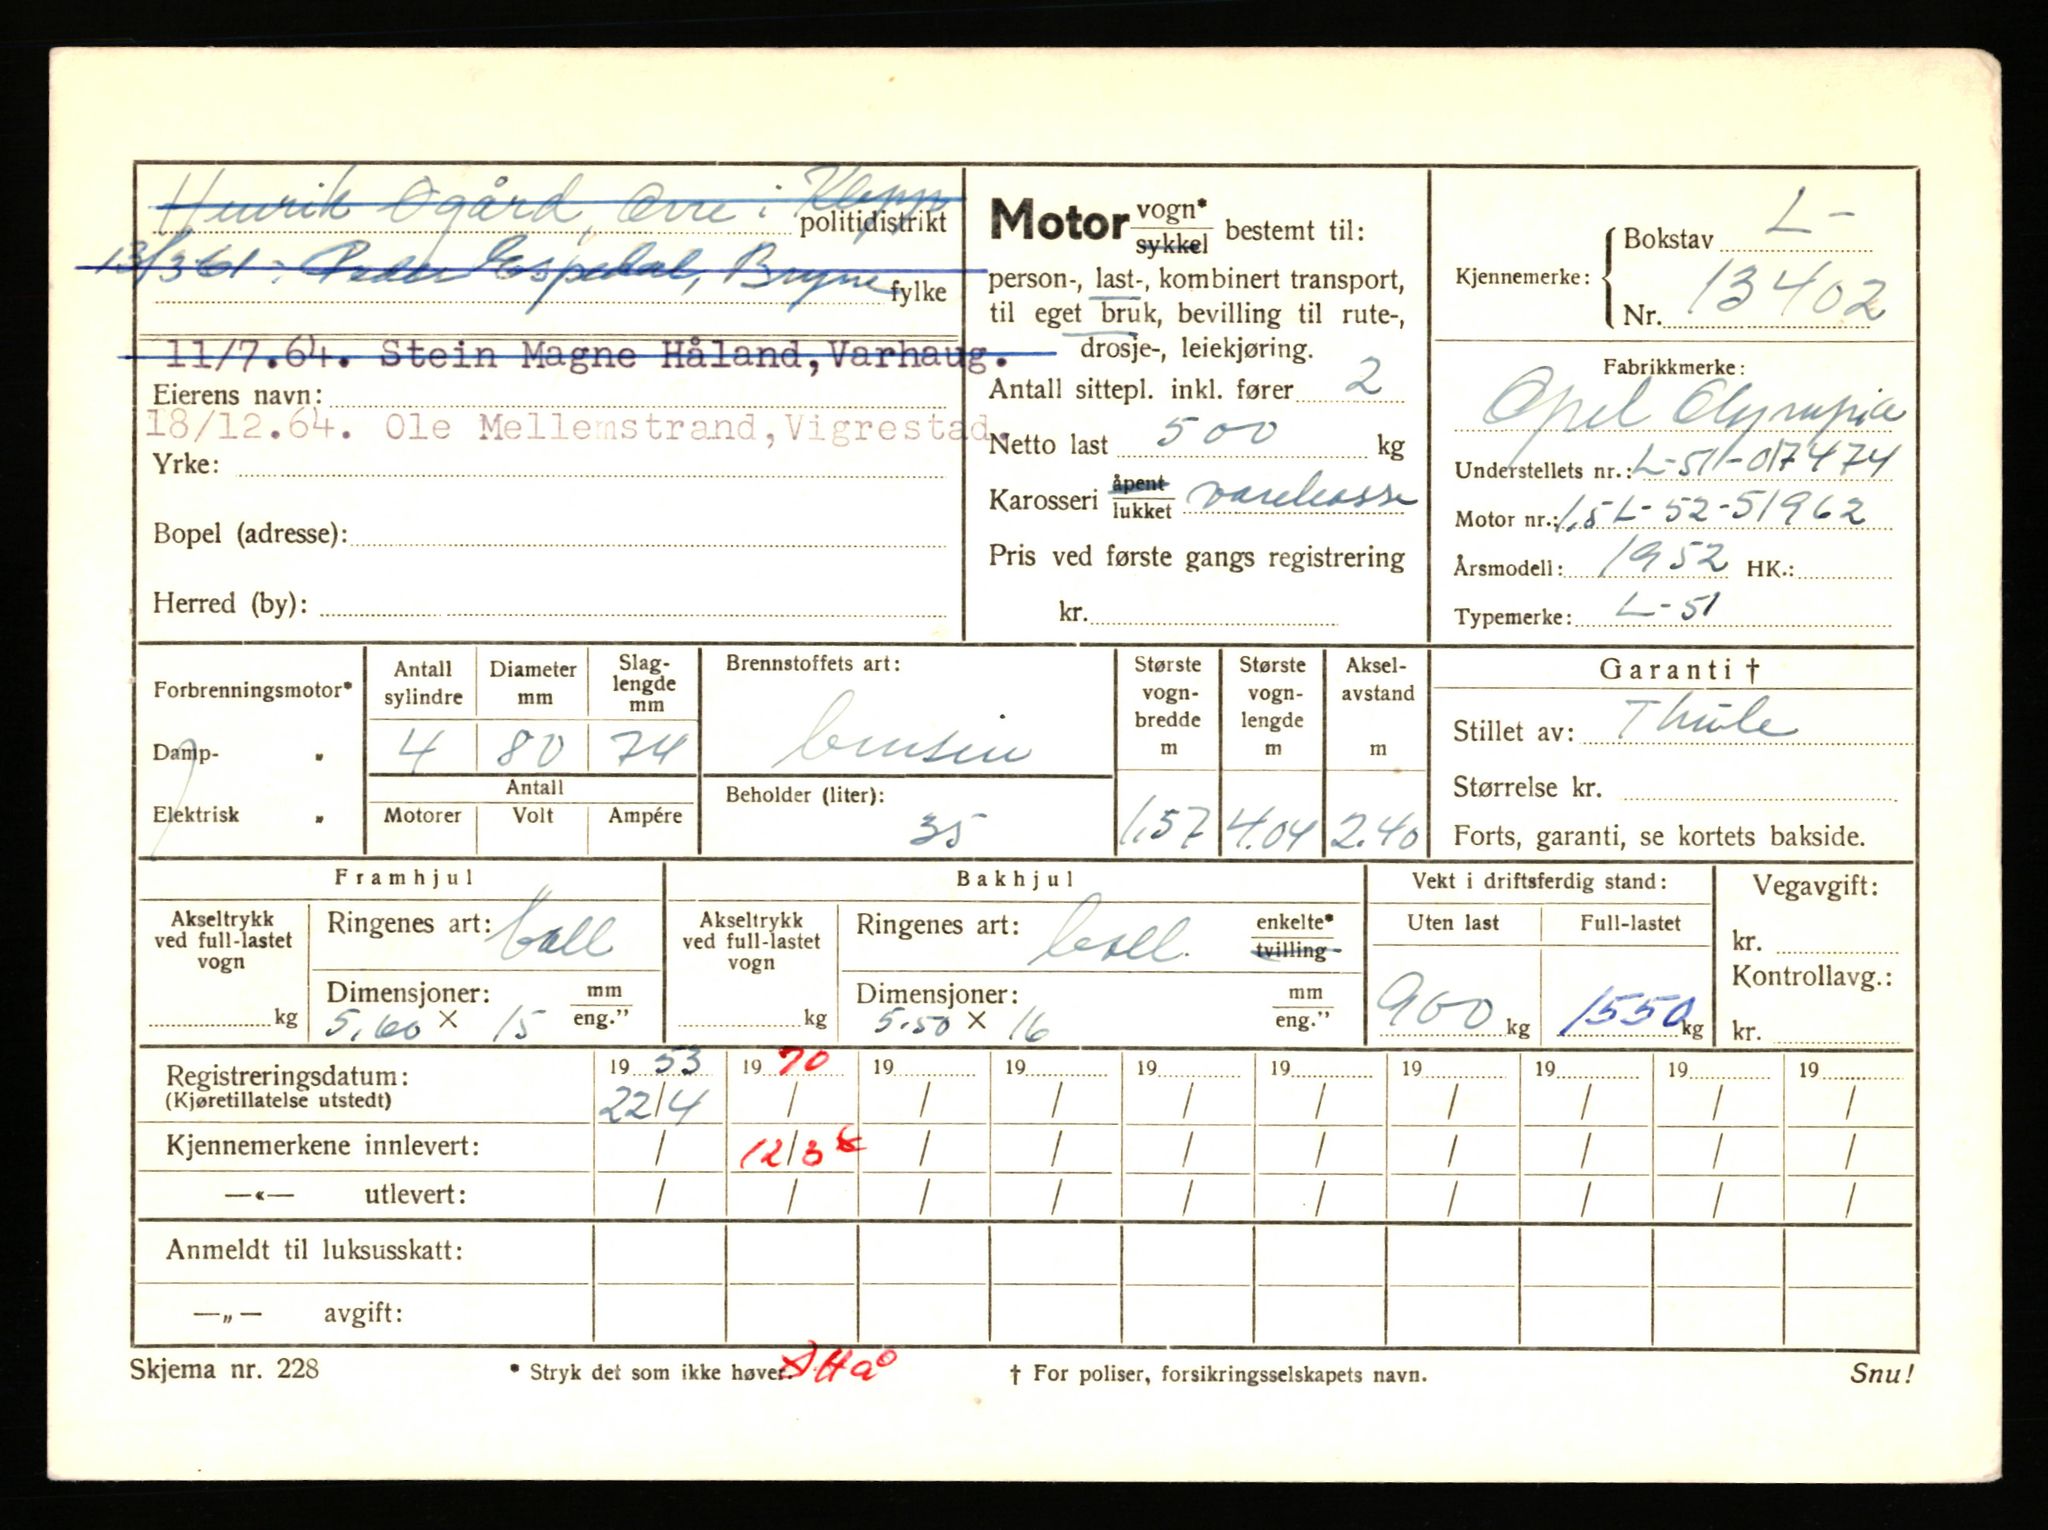 Henrik Øgård, Orre i Klepp
politidistrikt
13/3 61: Peder Espedal, Bryne
fylke
11/7.64. Stein Magne Håland, Varhaug.
Eierens navn:
18/12.64. Ole Mellemstrand, Vigrestad.
Yrke:
Bopel (adresse):
Herred (by):
Motor vogn* sykkel bestemt til:
person-, last-, kombinert transport,
til eget bruk, bevilling til rute-,
drosje-, leiekjøring.
Antall sittepl. inkl. fører 2
Netto last 500 kg
Karosseri åpent lukket varekasse
Pris ved første gangs registrering
kr.
Kjennemerke: Bokstav L-
Nr. 13402
Fabrikkmerke:
Opel Olympia
Understellets nr.: L-51-017474
Motor nr.: 1,5L-52-51962
Årsmodell: 1952 HK.:
Typemerke: L-51
Forbrenningsmotor*
Damp- "
Elektrisk "
Antall sylindre
4
Diameter mm
80
Slag-lengde mm
74
Antall
Motorer Volt Ampére
Brennstoffets art:
bensin
Beholder (liter):
35
Største vogn-bredde m
1,57
Største vogn-lengde m
4.04
Aksel-avstand m
2.40
Garanti †
Stillet av: Thule
Størrelse kr.
Forts, garanti, se kortets bakside.
Framhjul
Akseltrykk ved full-lastet vogn
kg
Ringenes art: ball
Dimensjoner: mm eng."
5,60 × 15
Bakhjul
Akseltrykk ved full-lastet vogn
kg
Ringenes art: ball. enkelte* tvilling
Dimensjoner: mm eng."
5.50 × 16
Vekt i driftsferdig stand:
Uten last Full-lastet
900 kg 1550 kg
Vegavgift:
kr.
Kontrollavg.:
kr.
Registreringsdatum: 19 53 19 70 19 19 19 19 19 19 19 19
(Kjøretillatelse utstedt) 22/4 / / / / / / / / /
Kjennemerkene innlevert: / 12/3 / / / / / / / /
—«— utlevert: / / / / / / / / / /
Anmeldt til luksusskatt:
—„— avgift:
Skjema nr. 228
* Stryk det som ikke høver.
† For poliser, forsikringsselskapets navn.
Snu!